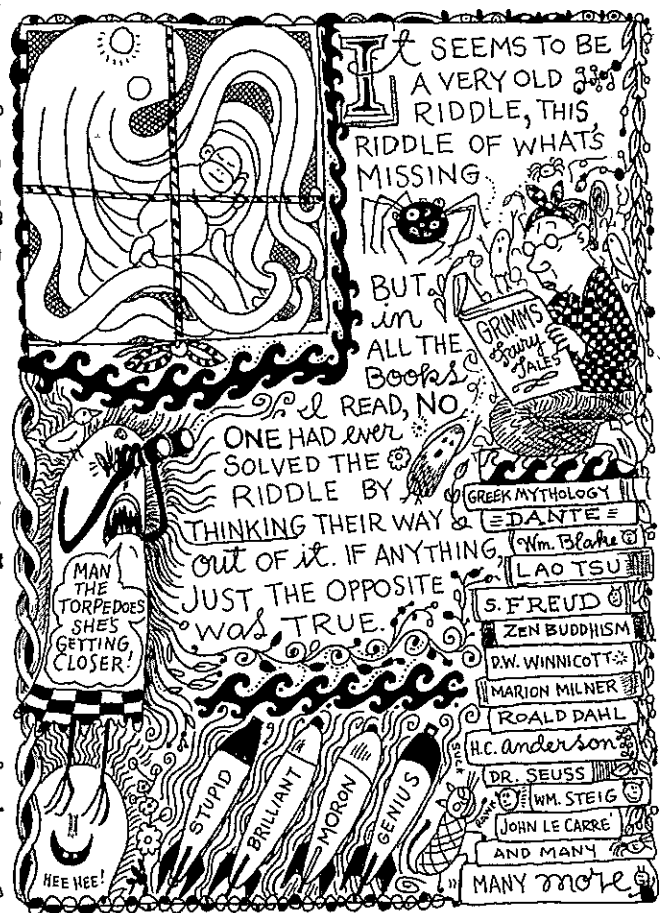 It SEEMS TO BE
A VERY OLD
RIDDLE, THIS
RIDDLE OF WHAT'S
MISSING
BUT
in
ALL THE
BOOKS
I READ, NO
ONE HAD ever
SOLVED THE
RIDDLE BY
THINKING THEIR WAY
out OF it. IF ANYTHING,
JUST THE OPPOSITE
was TRUE.
GRIMMS
Fairy
TALES
GREEK MYTHOLOGY
DANTE
Wm. Blake
LAO TSU
S. FREUD
ZEN BUDDHISM
D.W. WINNICOTT
MARION MILNER
ROALD DAHL
H.C. anderson
DR. SEUSS
WM. STEIG
JOHN LE CARRE'
AND MANY
MANY more
MAN
THE
TORPEDOES
SHE'S
GETTING
CLOSER!
HEE HEE!
STUPID
BRILLIANT
MORON
GENIUS
SUCK